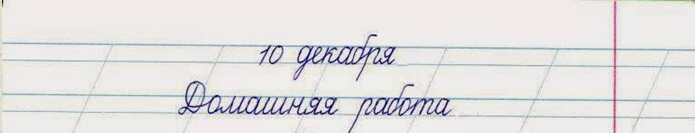 10 декабря
Домашняя работа